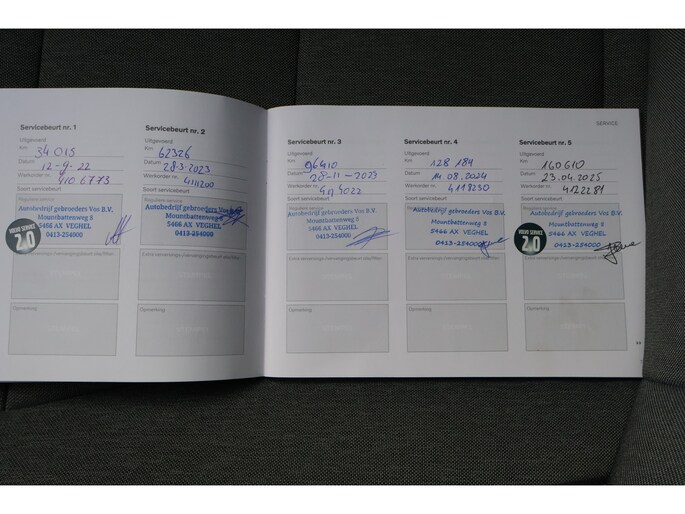 SERVICE
Servicebeurt nr. 1
Uitgevoerd
Km 34 015
Datum 12-9-22
Werkorder nr. 410 6773
Soort servicebeurt
Reguliere service
Autobedrijf gebroeders Vos B.V.
Mountbattenweg 8
5466 AX VEGHEL
0413-254000
VOLVO SERVICE
2.0
Opmerking
Servicebeurt nr. 2
Uitgevoerd
Km 62326
Datum 28-3-2023
Werkorder nr. 4111200
Soort servicebeurt
Reguliere service
Autobedrijf gebroeders Vos B.V.
Mountbattenweg 8
5466 AX VEGHEL
0413-254000
Opmerking
Servicebeurt nr. 3
Uitgevoerd
Km 96410
Datum 28-11-2023
Werkorder nr.
Soort servicebeurt
Reguliere service
Autobedrijf gebroeders Vos B.V.
Mountbattenweg 8
5466 AX VEGHEL
0413-254000
Opmerking
Servicebeurt nr. 4
Uitgevoerd
Km 128 184
Datum 14.08.2024
Werkorder nr. 4118230
Soort servicebeurt
Reguliere service
Autobedrijf gebroeders Vos B.V.
Mountbattenweg 8
5466 AX VEGHEL
0413-254000
Opmerking
Servicebeurt nr. 5
Uitgevoerd
Km 160610
Datum 23.04.2025
Werkorder nr. 4122281
Soort servicebeurt
Reguliere service
Autobedrijf gebroeders Vos B.V.
Mountbattenweg 8
5466 AX VEGHEL
0413-254000
VOLVO SERVICE
2.0
Opmerking